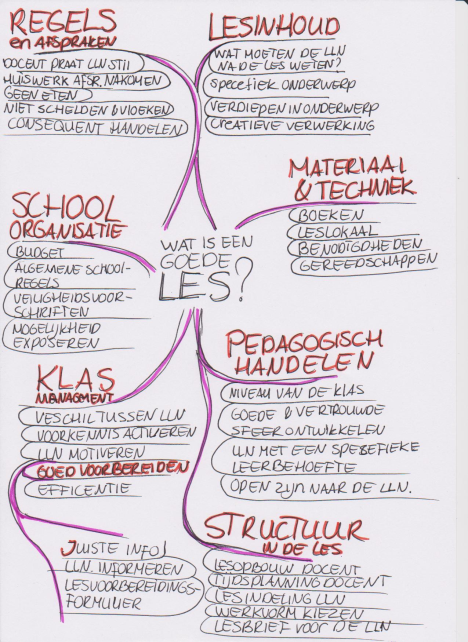 REGELS
en AFSPRAKEN
DOCENT PRAAT LLN STIL
HUISWERK AFSR. NAKOMEN
GEEN ETEN
NIET SCHELDEN & VLOEKEN
CONSEQUENT HANDELEN
LESINHOUD
WAT MOETEN DE LLN
NA DE LES WETEN?
SPECEFIEK ONDERWERP
VERDIEPEN IN ONDERWERP
CREATIEVE VERWERKING
MATERIAAL
& TECHNIEK
BOEKEN
LESLOKAAL
BENODIGDHEDEN
GEREEDSCHAPPEN
SCHOOL
ORGANISATIE
BUDGET
ALGEMENE SCHOOL-
REGELS
VEILIGHEIDSVOOR-
SCHRIFTEN
MOGELIJKHEID
EXPOSEREN
WAT IS EEN
GOEDE
LES?
PEDAGOGISCH
HANDELEN
NIVEAU VAN DE KLAS
GOEDE & VERTROUWDE
SFEER ONTWIKKELEN
LLN MET EEN SPESEFIEKE
LEERBEHOEFTE
OPEN ZIJN NAAR DE LLN.
KLAS
MANAGMENT
VESCHIL TUSSEN LLN
VOORKENNIS ACTIVEREN
LLN MOTIVEREN
GOED VOORBEREIDEN
EFFICENTIE
JUISTE INFO!
LLN INFORMEREN
LESVOORBEREIDINGS-
FORMULIER
STRUCTUUR
IN DE LES
LESOPBOUW DOCENT
TIJDSPLANNING DOCENT
LESINDELING LLN
WERKVORM KIEZEN
LESBRIEF VOOR DE LLN